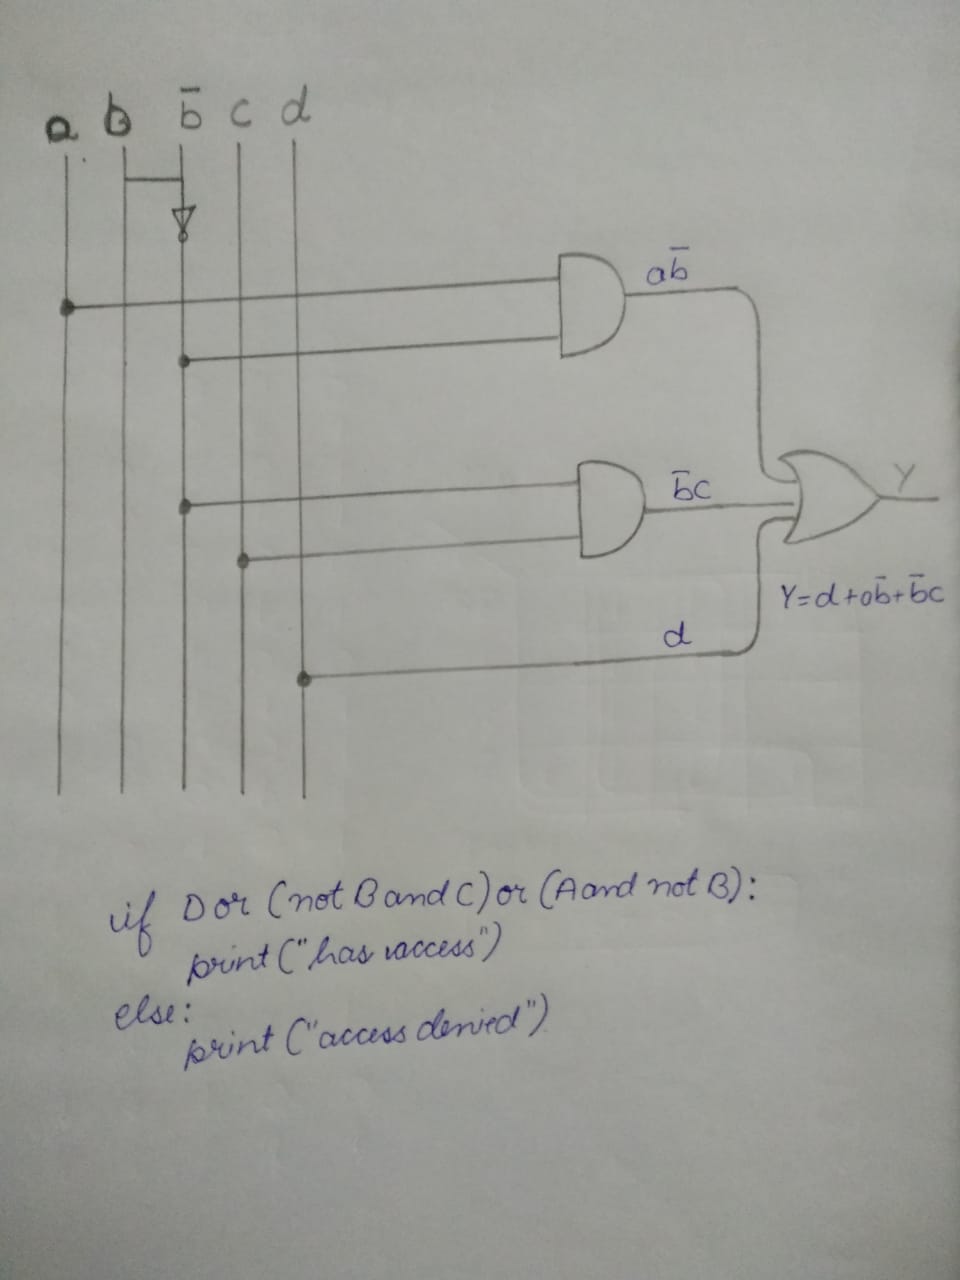 a b b̄ c d
ab̄
b̄c
Y
Y=d+ab̄+b̄c
d
if D or (not B and C) or (A and not B):
print ("has access")
else:
print ("access denied")